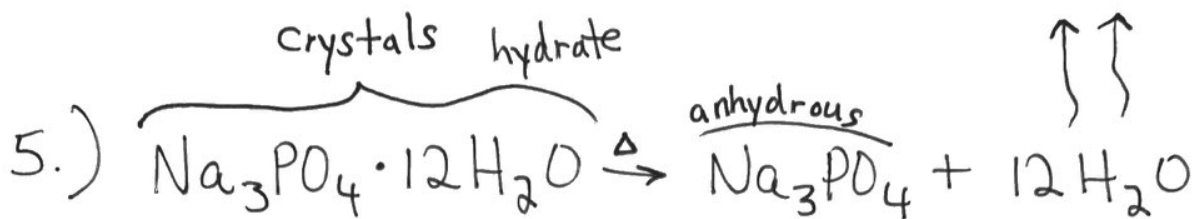 crystals hydrate
anhydrous
5.) Na₃PO₄·12H₂O →Δ Na₃PO₄ + 12H₂O